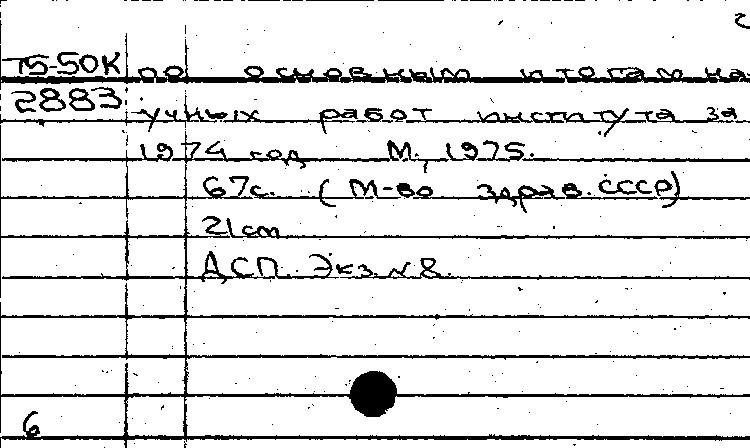 2
Т5-50К по основным итогам на
2883 учных работ института за
1974 год М., 1975.
67с. (М-во здрав. СССР)
21 см
ДСП. Экз. N 8.
6